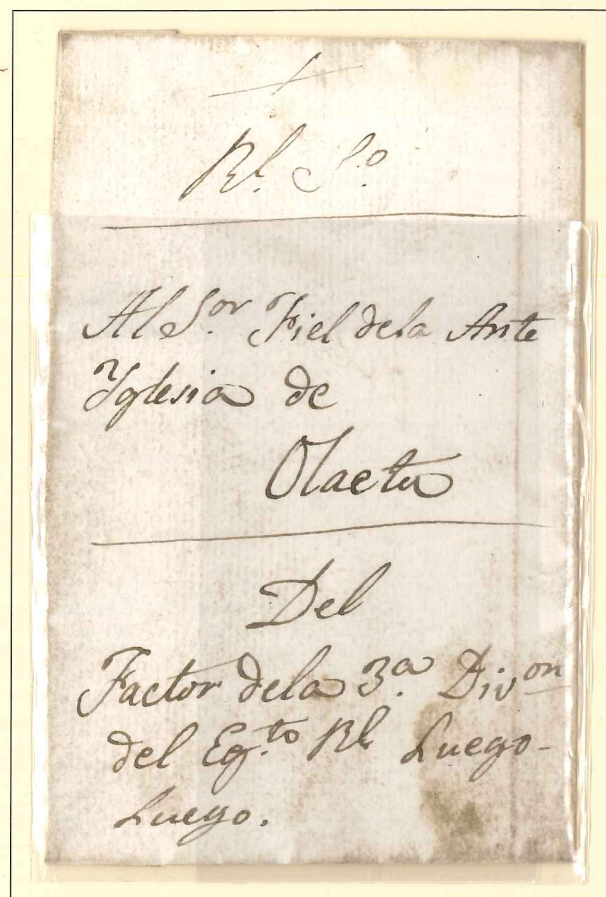 Rl. So
Al Sor. Fiel dela Ante
Yglesia de
Olaeta
Del
Factor dela 3a. Divon
del Egto. Rl. Luego-
Luego.